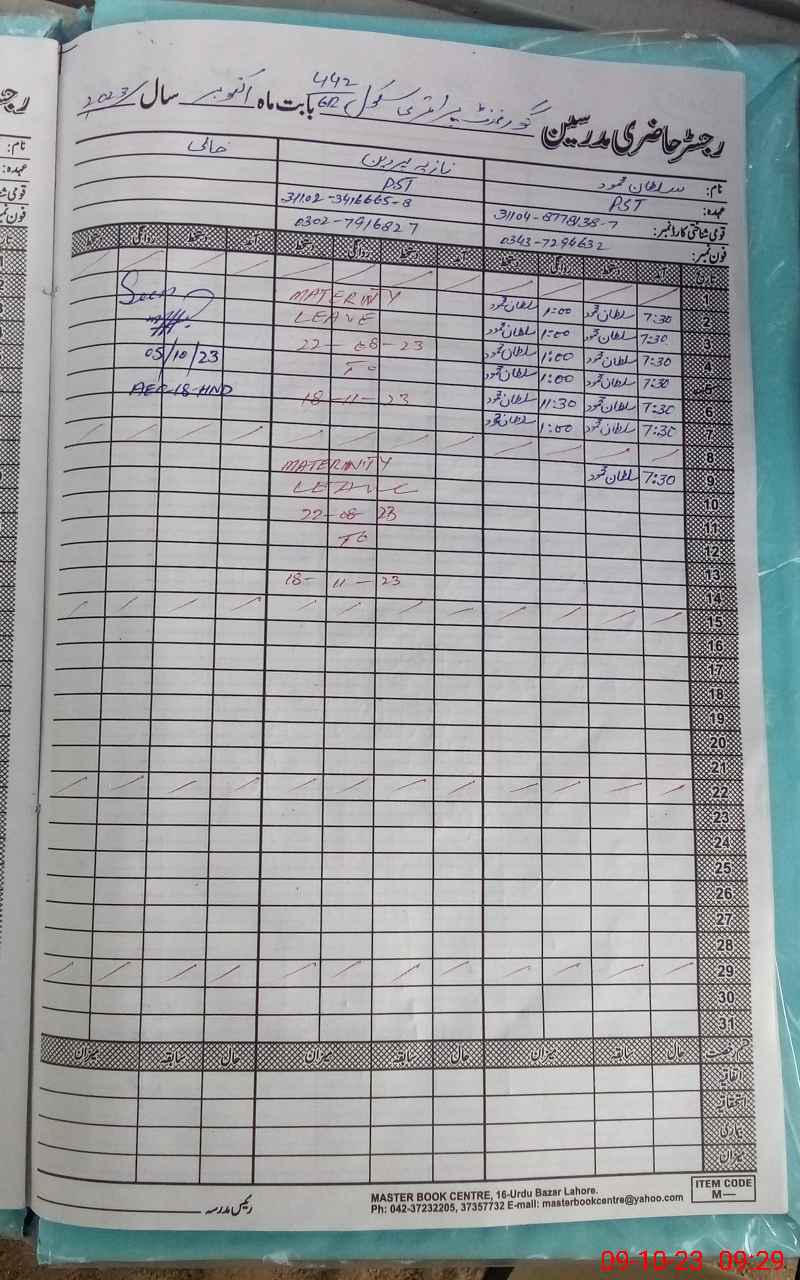 رجسٹر حاضری مدرسین گورنمنٹ پرائمری سکول 442/6R بابت ماہ اکتوبر سال 2023
نام: سلطان محمود
عہدہ: PST
قومی شناختی کارڈ نمبر: 31104-8778138-7
فون نمبر: 0343-7294632
نازیہ پروین
PST
31102-3416665-8
0302-7916827
خالی
آمد دستخط روانگی دستخط آمد دستخط روانگی دستخط آمد دستخط روانگی دستخط
1
2 7:30 سلطان محمود 1:00 سلطان محمود
3 7:30 سلطان محمود 1:00 سلطان محمود
4 7:30 سلطان محمود 1:00 سلطان محمود
5 7:30 سلطان محمود 1:00 سلطان محمود
6 7:30 سلطان محمود 11:30 سلطان محمود
7 7:30 سلطان محمود 1:00 سلطان محمود
8
9 7:30 سلطان محمود
10
11
12
13
14
15
16
17
18
19
20
21
22
23
24
25
26
27
28
29
30
31
MATERINTY
LEAVE
22-08-23
To
18-11-23
MATERINITY
LEAVE
22-08-23
TO
18-11-23
Seen
05/10/23
AEO-18-HND
قسم رخصت حال سابقہ میزان حال سابقہ میزان حال سابقہ میزان
اتفاقیہ
استحقاقیہ
بیماری
میزان
رئیس مدرسہ
MASTER BOOK CENTRE, 16-Urdu Bazar Lahore.
Ph: 042-37232205, 37357732 E-mail: masterbookcentre@yahoo.com
ITEM CODE
M—
نام:
عہدہ:
09-10-23 09:29